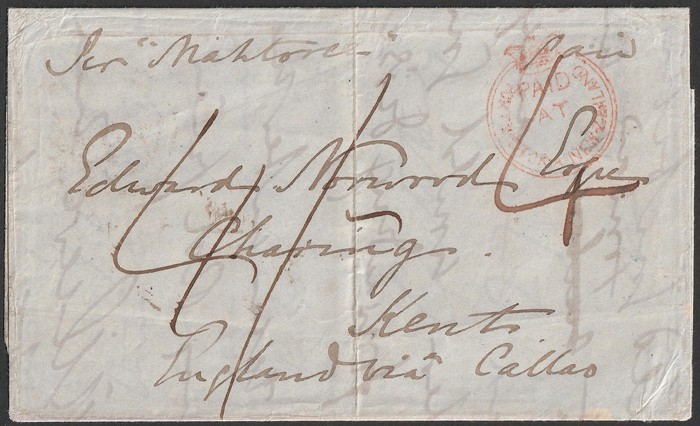 Per "Mahtoree" Paid
PAID
AT
NEW ZEALAND
Edward Norwood Esqre
Charing.
Kent
England via Callao
4